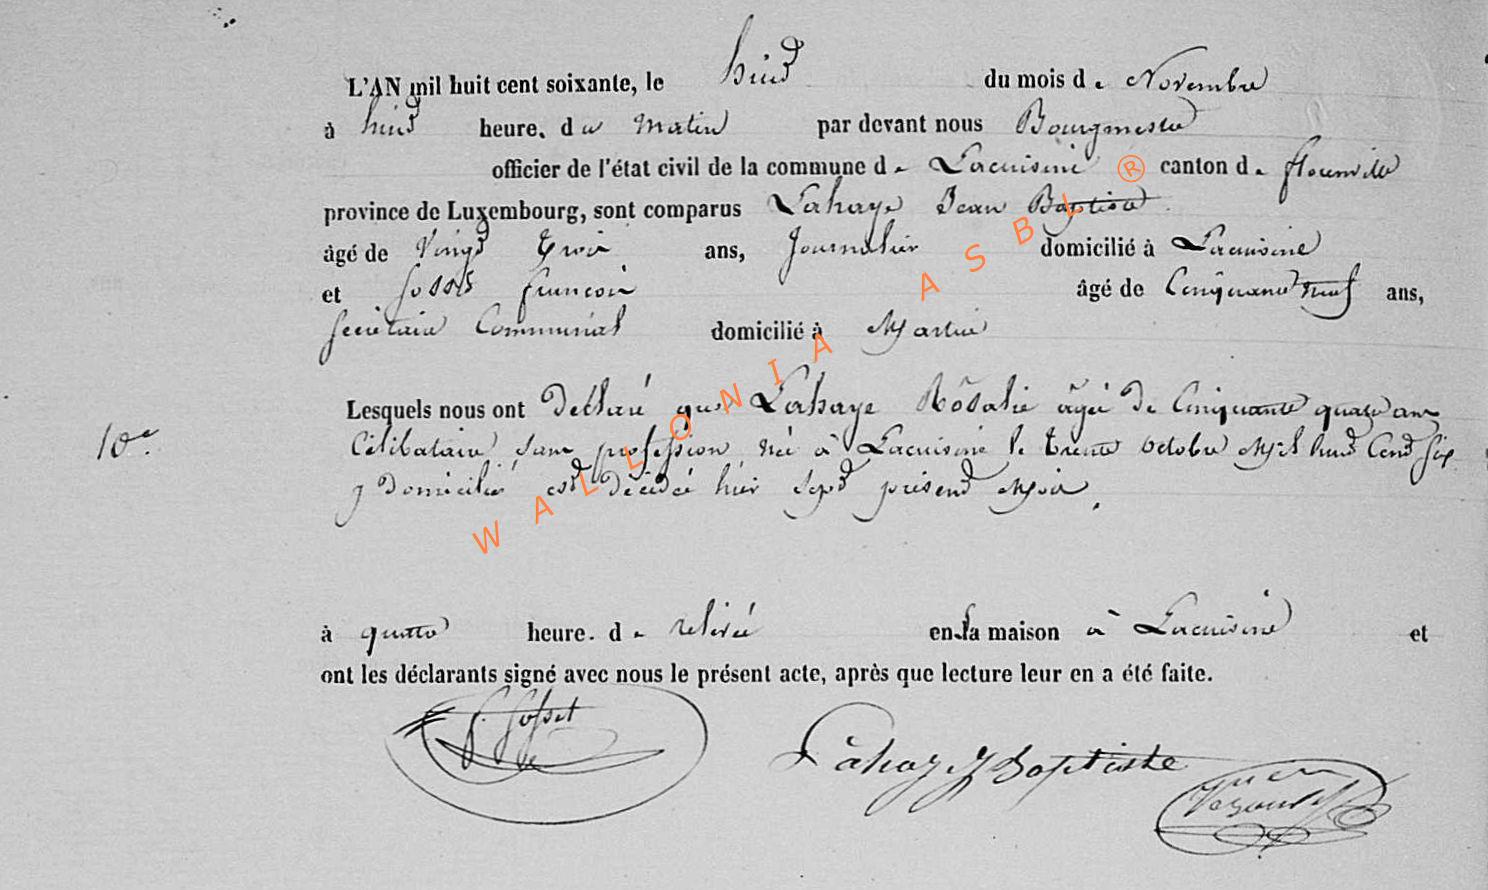 L'AN mil huit cent soixante, le huit du mois de Novembre
à huit heure. du Matin par devant nous Bourgmestre
officier de l'état civil de la commune de Lacuisine ® canton de florenville
province de Luxembourg, sont comparus Lahaye Jean Baptiste
âgé de Vingt Trois ans, Journalier domicilié à Lacuisine
et Gosset françois âgé de Cinquante neuf ans,
Secrétaire Communal domicilié à Martué
Lesquels nous ont déclaré que Lahaye Rosalie âgée de Cinquante quatre ans
10e.
Célibataire sans profession née à Lacuisine le trente octobre Mil huit Cent six
y domicilié est décédé hier sept présent Mois.
à quatre heure. de relevée en la maison à Lacuisine et
ont les déclarants signé avec nous le présent acte, après que lecture leur en a été faite.
f. Gosset
Lahay J Baptiste
WALLONIA ASBL